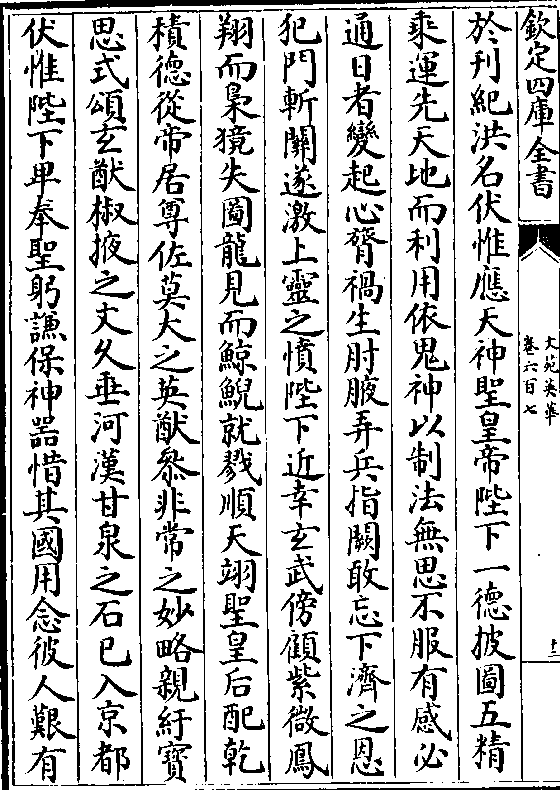 欽定四庫全書
文苑英華
卷六百七
十二
於刋紀洪名伏惟應天神聖皇帝陛下一德披圖五精
乘運先天地而利用依鬼神以制法無思不服有感必
通日者變起心膂禍生肘腋弄兵指闕敢忘下濟之恩
犯門斬關遂激上靈之憤陛下近幸玄武傍顧紫微鳳
翔而梟獍失圖龍見而鯨鯢就戮順天翊聖皇后配乾
積德從帝居尊佐莫大之英猷叅非常之妙略親紆寶
思式頌玄猷椒掖之文久垂河漢甘泉之石已入京都
伏惟陛下卑奉聖躬謙保神器惜其國用念彼人艱有